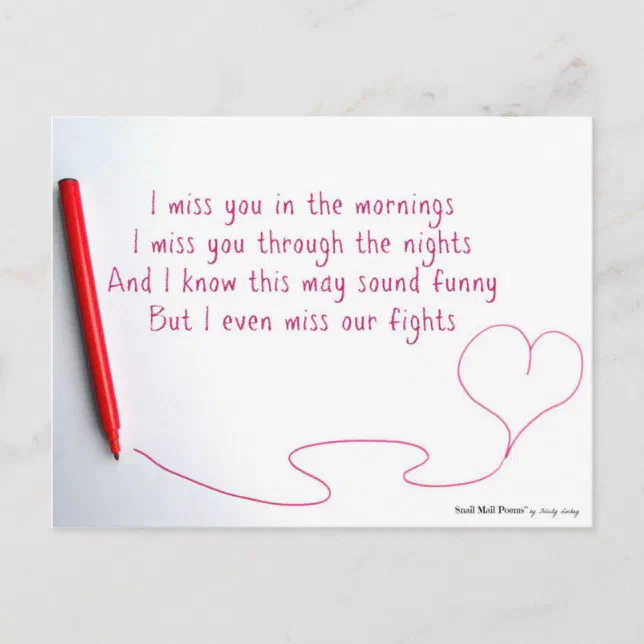 I miss you in the mornings
I miss you through the nights
And I know this may sound funny
But I even miss our fights
Snail Mail Poems™ by